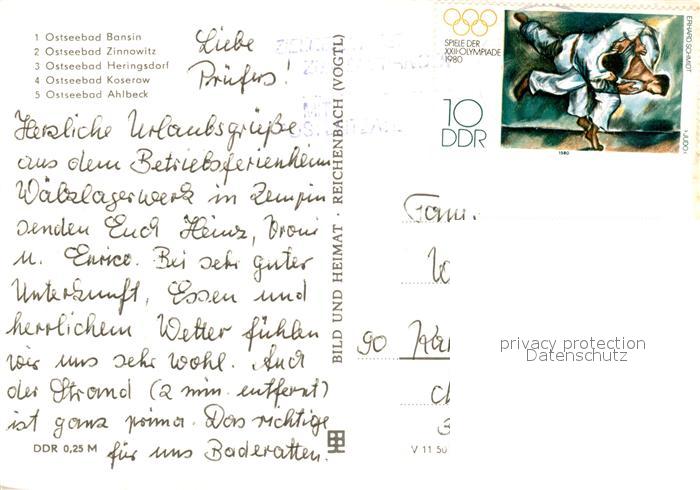 1 Ostseebad Bansin
2 Ostseebad Zinnowitz
3 Ostseebad Heringsdorf
4 Ostseebad Koserow
5 Ostseebad Ahlbeck
Liebe
Prüfers!
Herzliche Urlaubsgrüße
aus dem Betriebsferienheim
Wälzlagerwerk in Zempin
senden Euch Heinz, Vroni
u. Enrico. Bei sehr guter
Unterkunft, Essen und
herrlichem Wetter fühlen
wir uns sehr wohl. Auch
der Strand (2 min. entfernt)
ist ganz prima. Das richtige
für uns Baderatten.
DDR 0,25 M
BILD UND HEIMAT · REICHENBACH (VOGTL)
SPIELE DER
XXII. OLYMPIADE
1980
10
DDR
ERHARD SCHMIDT
1980
Fam.
90
privacy protection
Datenschutz
V 11 50